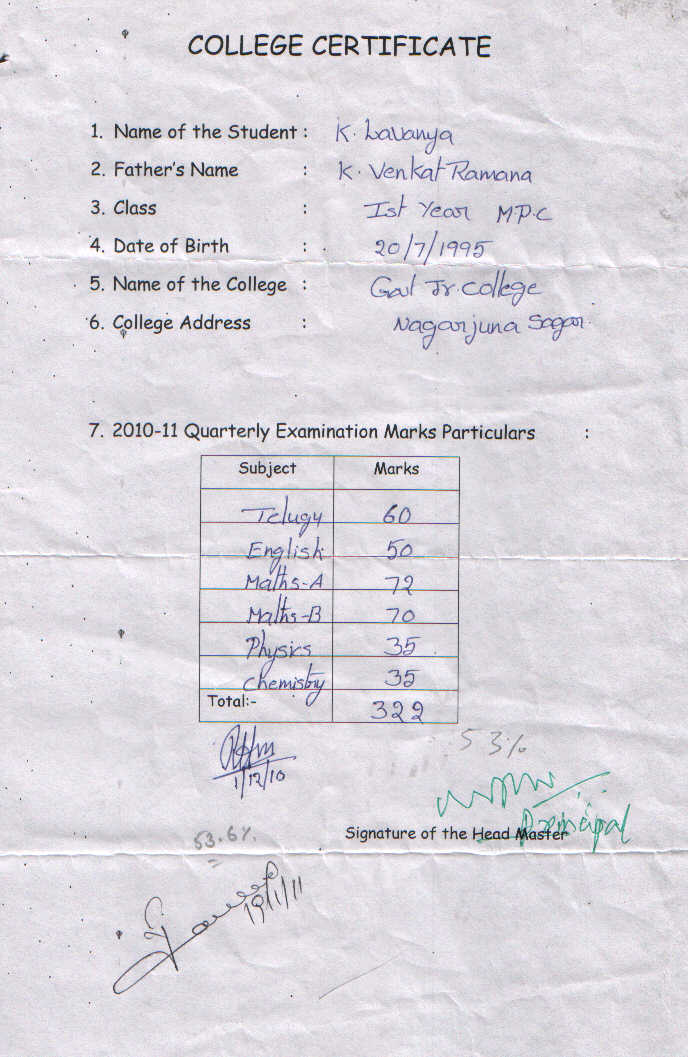 COLLEGE CERTIFICATE
1. Name of the Student : K. Lavanya
2. Father's Name : K. Venkat Ramana
3. Class : Ist Year M.P.C
4. Date of Birth : 20/7/1995
5. Name of the College : Govt Jr. College
6. College Address : Nagarjuna Sagar.
7. 2010-11 Quarterly Examination Marks Particulars :
Subject Marks
Telugu 60
English 50
Maths-A 72
Maths-B 70
Physics 35
Chemistry 35
Total:- 322
53%
1/12/10
Principal
Signature of the Head Master
53.6%
19/1/11